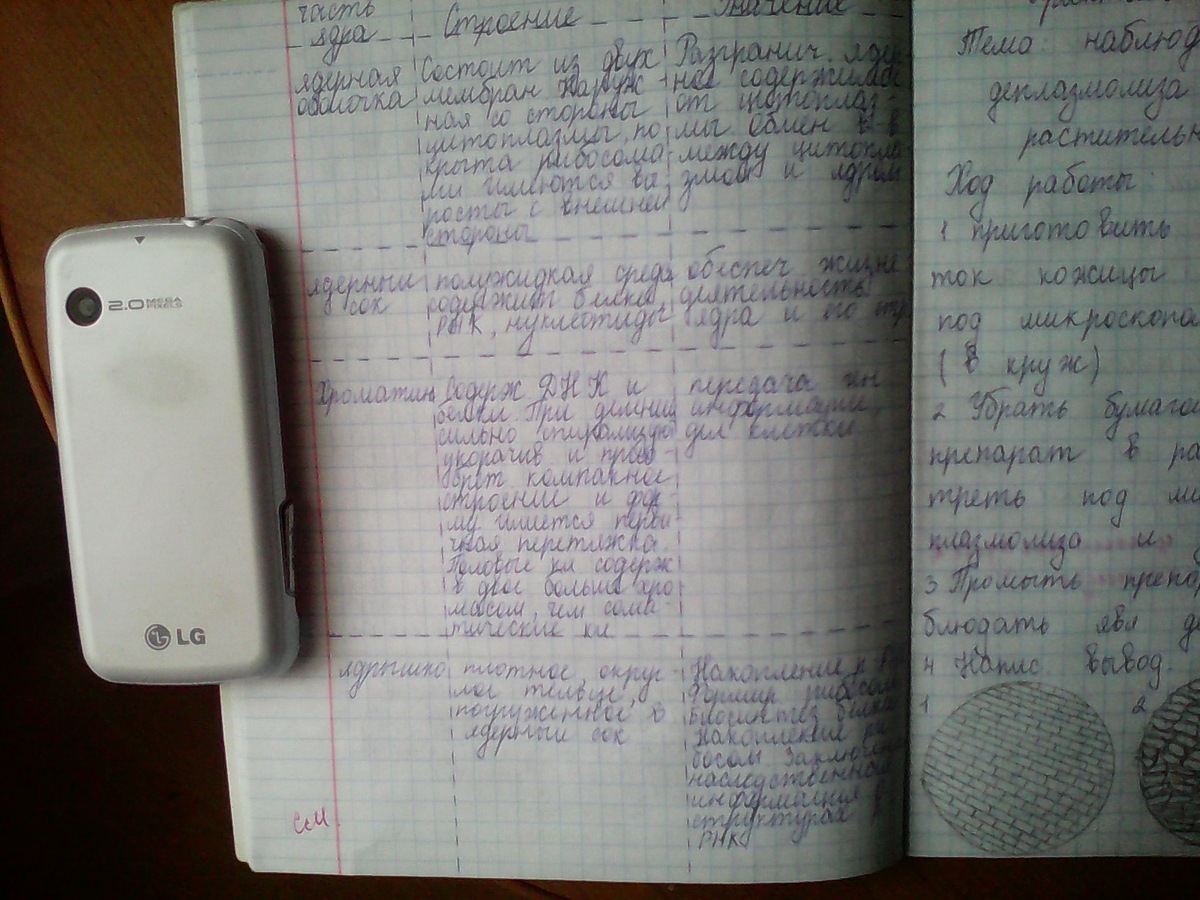 2.0 MEGA PIXELS
LG
часть ядра
Строение
Значение
ядерная
оболочка
Состоит из двух
мембран наруж
ная со стороны
цитоплазмы, по
крыта рибосома
ми имеются
росты с внешней
стороны
Разгранич. ядер
ное содержимое
от цитоплаз-
мы обмен в в
между цитопла
змой и ядром
ядерный
сок
полужидкая среда
содержит белки
РНК, нуклеотиды
обеспеч жизне
деятельность
ядра и его
Хроматин
Содерж ДНК и
белки При делении
сильно спирализую
укорачив и приоб-
компакное
строение и фор-
му имеется перви-
чная перетяжка.
Половые кл содерж
в двое больше хро
масом, чем сома-
тические кл
передача ин
информации
дел клетки
ядрышко
плотное, округ-
лое тельце,
погруженное в
ядерный сок
Накопление
Формир рибосом
Биосинтез белка
Накопление
босом Заключен
наследственной
информация
структурах
РНК
Тема наблюд
деплазмолиза
раститель
Ход работы
1 приготовить
ток кожицы
под микроскопо
(в круж)
2 Убрать бумаго
препарат в ра
треть под ми
плазмолиза и
3 Промыть препа
блюдать явл де
4 Напис вывод.
1
2